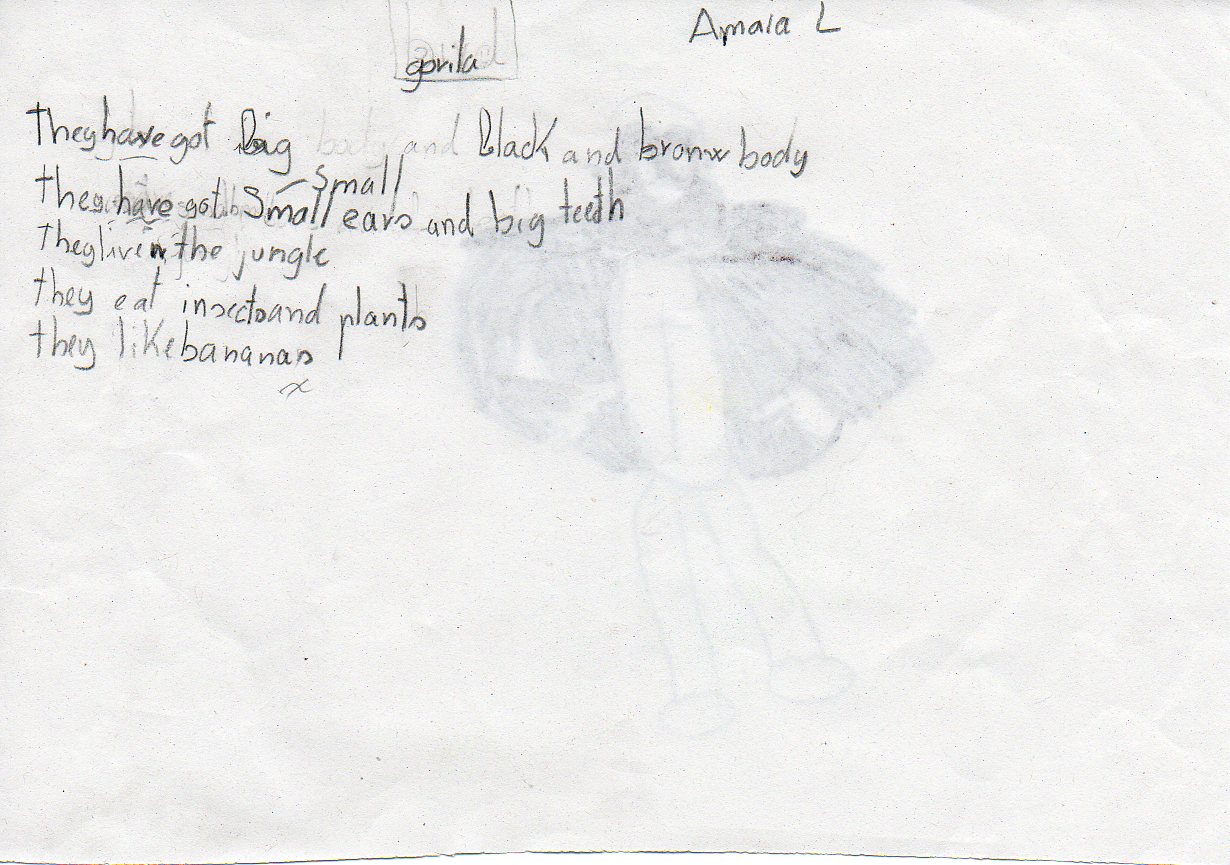 Amaia L
gorila
they have got Big body and Black and bronw body
small
they have got Small ears and big teeth
they live in the jungle
they eat insects and plants
they like bananas
x